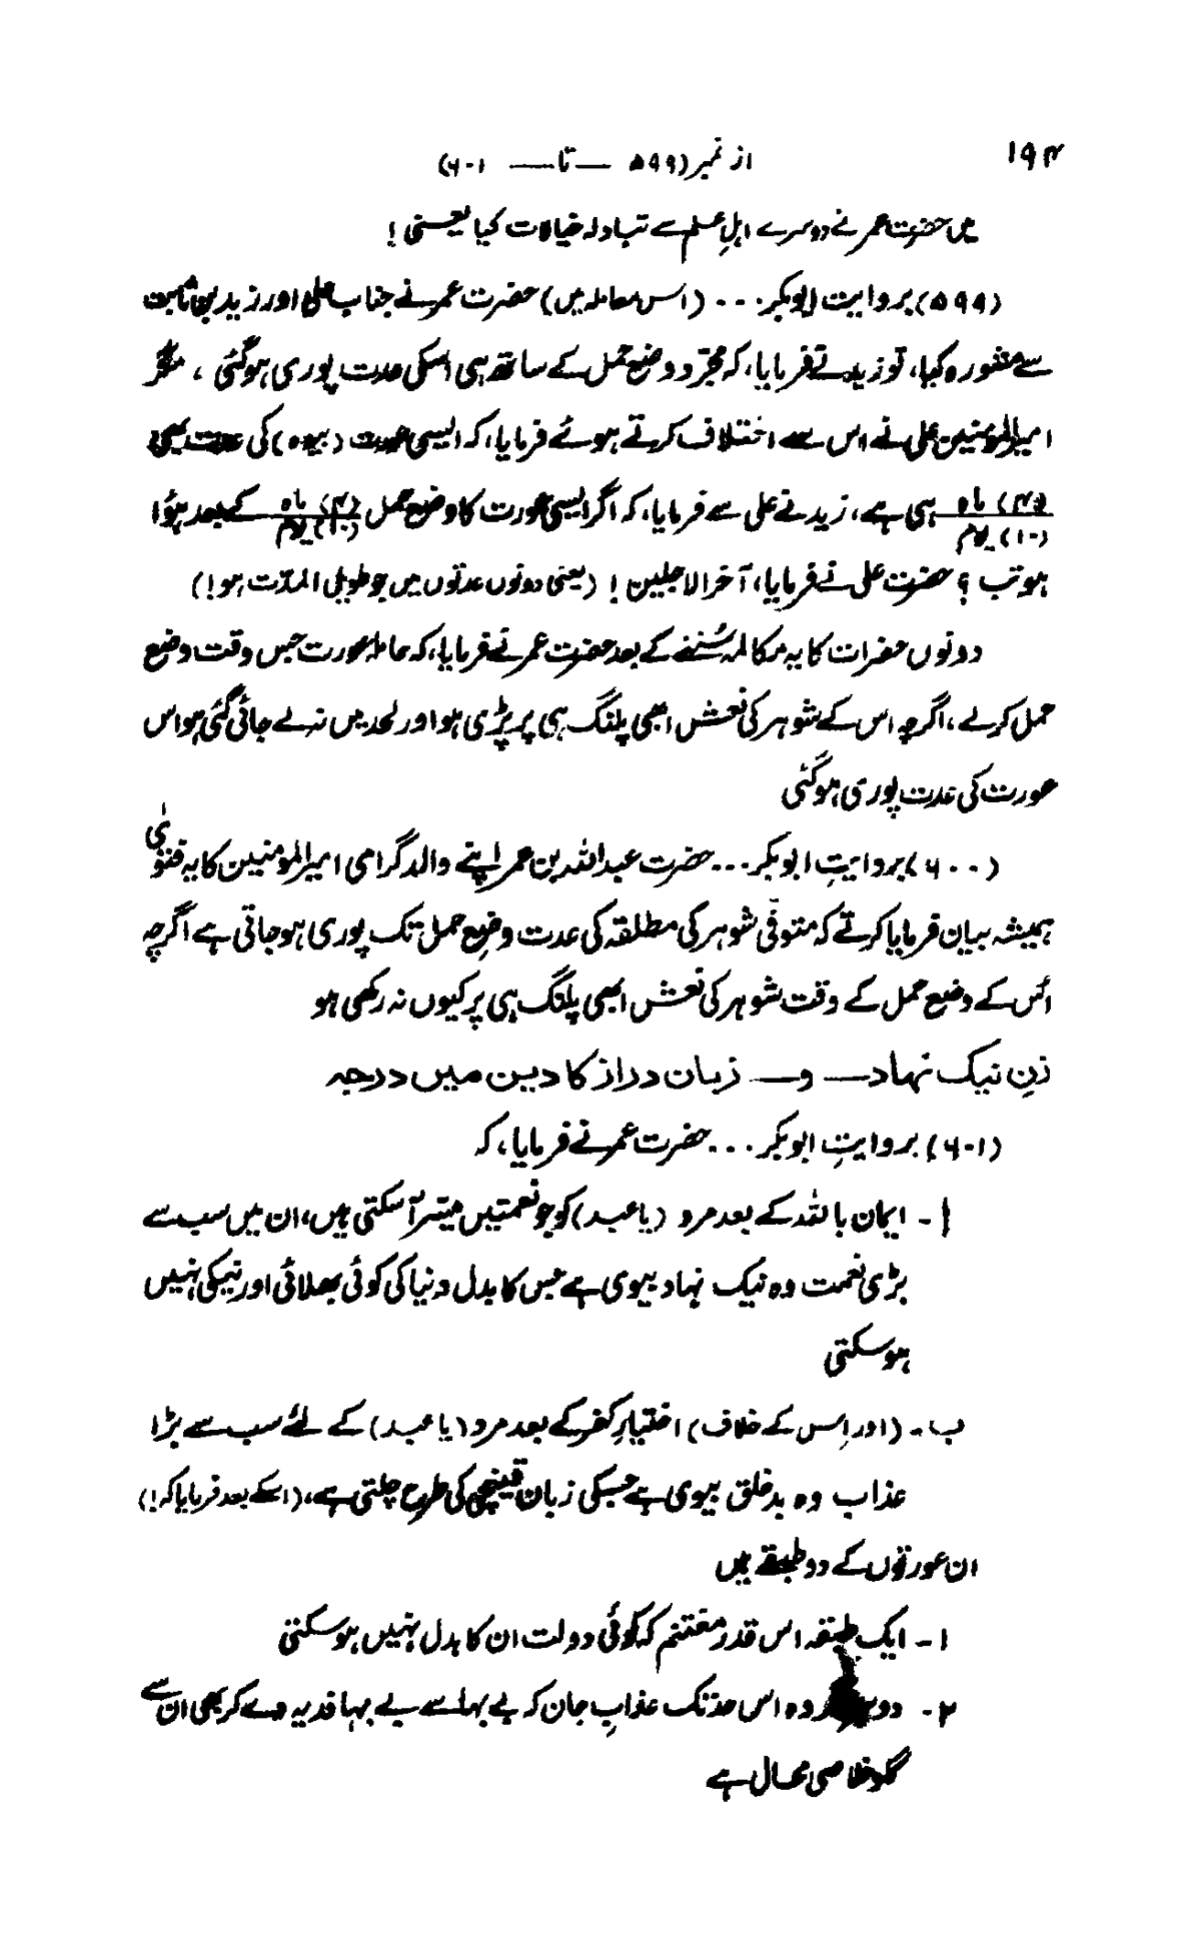 ۱۹۴
از نمبر (۵۹۹ — تا — ۶۰۱)
میں حضرت عمر نے دوسرے اہلِ علم سے تبادلہ خیالات کیا یعنی!
(۵۹۹) بروایت ابوبکر... (اس معاملہ میں) حضرت عمر نے جناب علی اور زید بن ثابت
سے مشورہ کیا، تو زید نے فرمایا، کہ مجرّد وضع حمل کے ساتھ ہی اسکی عدت پوری ہو گئی، مگر
امیرالمومنین علی نے اس سے اختلاف کرتے ہوئے فرمایا، کہ ایسی عورت (بیوہ) کی عدت بھی
(۴) ماہ (۱۰) یوم ہی ہے، زید نے علی سے فرمایا، کہ اگر ایسی عورت کا وضع حمل (۴) ماہ (۱۰) یوم کے بعد ہؤا
ہو تب؟ حضرت علی نے فرمایا، آخر الاجلین! (یعنی دونوں عدتوں میں جو طویل المدّت ہو!)
دونوں حضرات کا یہ مکالمہ سُننے کے بعد حضرت عمر نے فرمایا، کہ حاملہ عورت جس وقت وضع
حمل کرلے، اگرچہ اس کے شوہر کی نعش ابھی پلنگ ہی پر پڑی ہو اور لحد میں نہ لے جائی گئی ہو اس
عورت کی عدت پوری ہو گئی
(۶۰۰) بروایتِ ابوبکر... حضرت عبداللہ بن عمر اپنے والد گرامی امیرالمومنین کا یہ فتویٰ
ہمیشہ بیان فرمایا کرتے کہ متوفّی شوہر کی مطلقہ کی عدت وضعِ حمل تک پوری ہو جاتی ہے اگرچہ
اُس کے وضع حمل کے وقت شوہر کی نعش ابھی پلنگ ہی پر کیوں نہ رکھی ہو
زنِ نیک نہاد — و — زبان دراز کا دین میں درجہ
(۶۰۱) بروایتِ ابوبکر... حضرت عمر نے فرمایا، کہ
ا- ایمان باللہ کے بعد مرد (یا عبد) کو جو نعمتیں میسّر آ سکتی ہیں، ان میں سب سے
بڑی نعمت وہ نیک نہاد بیوی ہے جس کا بدل دنیا کی کوئی بھلائی اور نیکی نہیں
ہو سکتی
ب- (اور اِس کے خلاف) اختیارِ کفر کے بعد مرد (یا عبد) کے لئے سب سے بڑا
عذاب وہ بد خلق بیوی ہے جسکی زبان قینچی کی طرح چلتی ہے، (اسکے بعد فرمایا کہ!)
ان عورتوں کے دو طبقے ہیں
۱- ایک طبقہ اس قدر مغتنم کہ کوئی دولت ان کا بدل نہیں ہو سکتی
۲- وہ اس حد تک عذابِ جان کہ بے بہا سے بے بہا فدیہ دے کر بھی ان سے
گلو خلاصی محال ہے